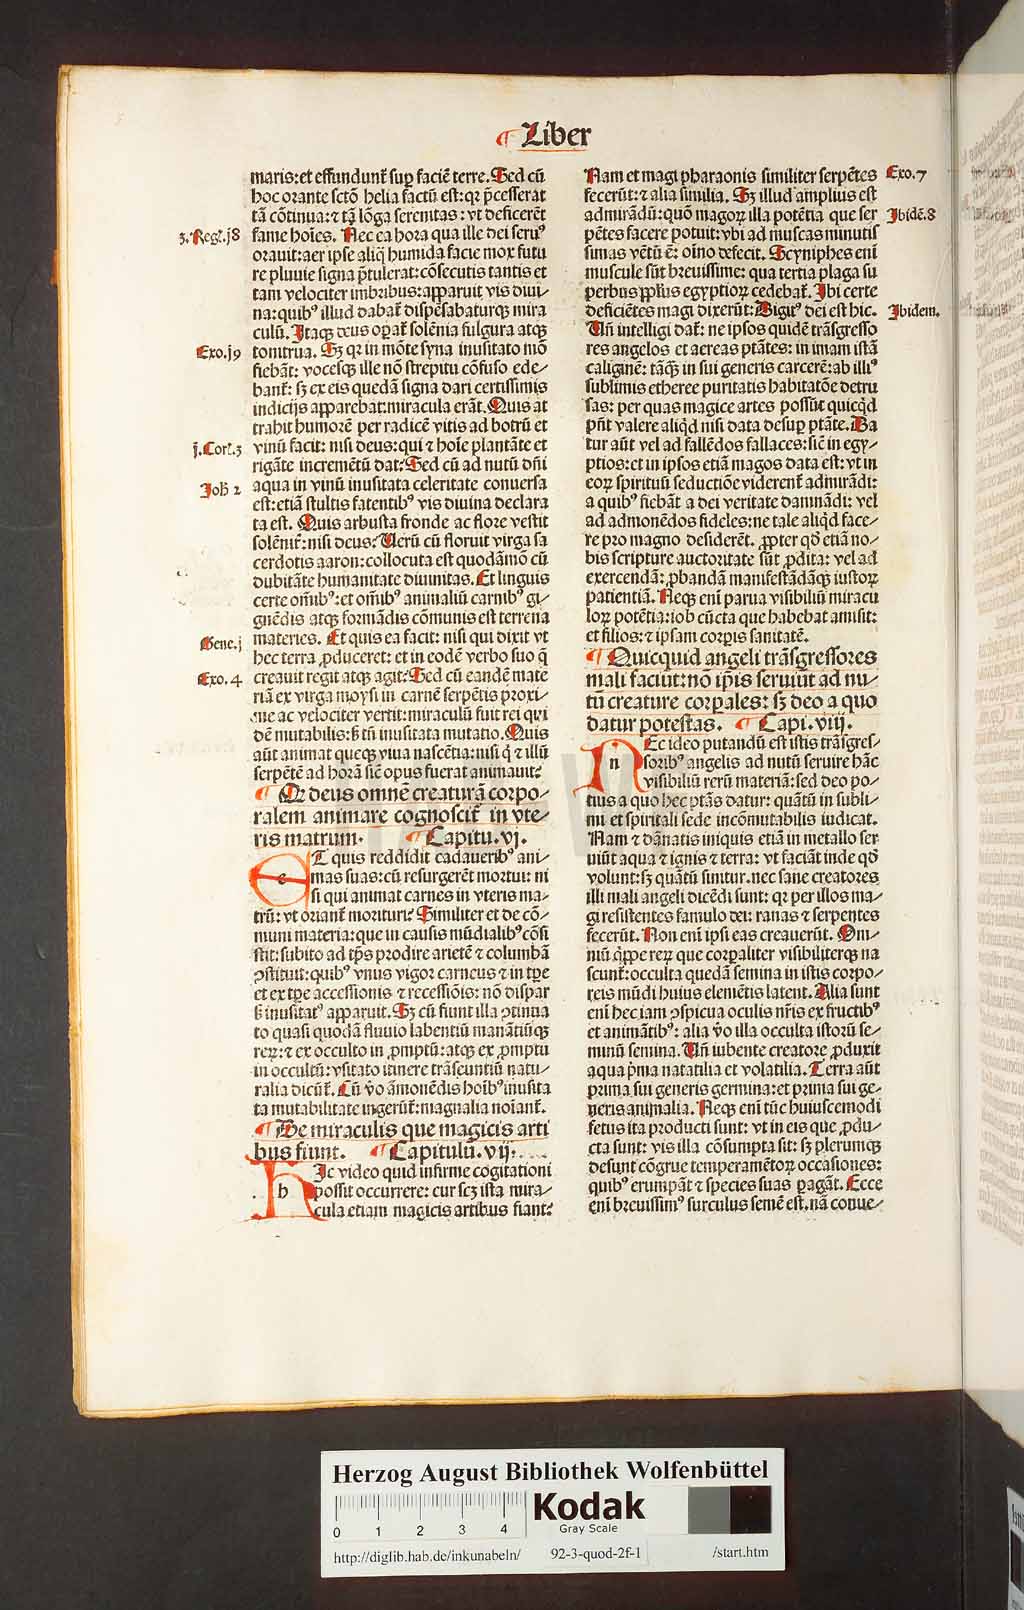 ¶ Liber
maris: et effundunt̃ sup̱ faciē terre. Sed cū
hoc orante sctō helia factū est: qꝛ p̃cesserat
tā cōtinua: ⁊ tā lōga serenitas: vt deficerēt
3. Regꝝ. j8
fame hoīes. Nec ea hora qua ille dei seruꝰ
orauit: aer ipse aliq̄ humida facie mox futu
re pluuie signa p̃tulerat: cōsecutis tantis et
tam velociter imbribus: apparuit vis diui-
na: quibꝰ illud dabat̃ dispēsabaturqꝫ mira
culū. Itaqꝫ deus opat̃ solēnia fulgura atqꝫ
Exo. j9
tonitrua. Sꝫ qꝛ in mōte syna inusitato mō
fiebāt: vocesqꝫ ille nō strepitu cōfuso ede-
bant̃: sꝫ ex eis quedā signa dari certissimis
indicijs apparebat: miracula erāt. Quis at
trahit humorē per radicē vitis ad botrū et
j. Corꝭ. 3
vinū facit: nisi deus: qui ⁊ hoīe plantāte et
rigāte incremētū dat? Sed cū ad nutū dn̄i
Joh̄ 2
aqua in vinū inusitata celeritate conuersa
est: etiā stultis fatentibꝰ vis diuina declara
ta est. Quis arbusta fronde ac flore vestit
solēnit̃: nisi deus? Uerū cū floruit virga sa
cerdotis aaron: collocuta est quodāmō cū
dubitāte humanitate diuinitas. Et linguis
certe om̄ibꝰ: et om̄ibꝰ animaliū carnibꝰ gi-
gnēdis atqꝫ formādis cōmunis est terrena
Gene. j
materies. Et quis ea facit: nisi qui dixit vt
hec terra ꝓduceret: et in eodē verbo suo q̄
Exo. 4
creauit regit atqꝫ agit? Sed cū eandē mate
riā ex virga moysi in carnē serpētis proxi-
me ac velociter vertit: miraculū fuit rei qui
dē mutabilis: sꝫ tn̄ inusitata mutatio. Quis
aūt animat queqꝫ viua nascētia: nisi q̇ ⁊ illū
serpētē ad horā sic̄ opus fuerat animauit?
¶ Qꝛ deus omnē creaturā corpo-
ralem animare cognoscit̃ in vte-
ris matrum. ¶ Capitu. vj.
ET quis reddidit cadaueribꝰ ani-
mas suas: cū resurgerēt mortui: ni
si qui animat carnes in vteris ma-
trū: vt oriant̃ morituri? Similiter et de cō-
muni materia: que in causis mūdialibꝰ cōsi
stit: subito ad tp̄s prodire arietē ⁊ columbā
ꝯstituit: quibꝰ vnus vigor carneus ⁊ in tp̄e
et ex tp̄e accessionis ⁊ recessiōis: nō dispar
sꝫ inusitatꝰ apparuit. Sꝫ cū fiunt illa ꝯtinua
to quasi quodā fluuio labentiū manātiūqꝫ
reꝝ: ⁊ ex occulto in ꝓmptū: atqꝫ ex ꝓmptu
in occultū: vsitato itinere trāseuntiū natu-
ralia dicūt̃. Cū v̇o āmonēdis hoībꝰ inusita
ta mutabilitate ingerūt̃: magnalia noīant̃.
¶ De miraculis que magicis arti
bus fiunt. ¶ Capitulū. vij.
HIc video quid infirme cogitationi
possit occurrere: cur scꝫ ista mira-
cula etiam magicis artibus fiant?
Nam et magi pharaonis similiter serpētes
Exo. 7
fecerūt: ⁊ alia similia. Sꝫ illud amplius est
admirādū: quō magoꝝ illa potētia que ser
Jbidē. 8
pētes facere potuit: vbi ad muscas minutis
simas vētū ē: oīno defecit. Scyniphes eni
muscule sūt breuissime: qua tertia plaga su
perbus pplūs egyptioꝝ cedebat̃. Ibi certe
deficiētes magi dixerūt: Digitꝰ dei est hic.
Jbidem.
Un̄ intelligi dat̃: ne ipsos quidē trāsgresso
res angelos et aereas ptātes: in imam istā
caliginē: tāqꝫ in sui generis carcerē: ab illiꝰ
sublimis etheree puritatis habitatōe detru
sas: per quas magice artes possūt quicqd̄
pn̄t valere aliqd̄ nisi data desup̱ ptāte. Da
tur aūt vel ad fallēdos fallaces: sic̄ in egy-
ptios: et in ipsos etiā magos data est: vt in
eoꝝ spirituū seductiōe viderent̃ admirādi:
a quibꝰ fiebāt a dei veritate damnādi: vel
ad admonēdos fideles: ne tale aliqd̄ face-
re pro magno desiderēt. ꝓpter qd̄ etiā no-
bis scripture auctoritate sūt ꝓdita: vel ad
exercendā: ꝓbandā manifestādāqꝫ iustoꝝ
patientiā. Neqꝫ eni parua visibiliū miracu
loꝝ potētia: iob cūcta que habebat amisit:
et filios: ⁊ ipsam corpis sanitatē.
¶ Quicquid angeli trāsgressores
mali faciūt: nō ip̄is seruiūt ad nu-
tū creature corpales: sꝫ deo a quo
datur potestas. ¶ Capi. viij.
NEc ideo putandū est istis trāsgres-
soribꝰ angelis ad nutū seruire hāc
visibiliū rerū materiā: sed deo po-
tius a quo hec ptās datur: quātū in subli-
mi et spirituali sede incōmutabilis iudicat.
Nam ⁊ dānatis iniquis etiā in metallo ser
uiūt aqua ⁊ ignis ⁊ terra: vt faciāt inde qd̄
volunt: sꝫ quātū sinitur. nec sane creatores
illi mali angeli dicēdi sunt: qꝛ per illos ma-
gi resistentes famulo dei: ranas ⁊ serpentes
fecerūt. Non eni ipsi eas creauerūt. Om-
niū q̇ppe reꝝ que corpaliter visibiliterqꝫ na
scunt̃: occulta quedā semina in istis corpo-
reis mūdi huius elemētis latent. Alia sunt
eni hec iam ꝯspicua oculis nr̄is ex fructibꝰ
et animātibꝰ: alia v̇o illa occulta istorū se-
minū semina. Un̄ iubente creatore ꝓduxit
aqua p̄ma natatilia et volatilia. Terra aūt
prima sui generis germina: et prima sui ge-
neris animalia. Neqꝫ eni tūc huiuscemodi
fetus ita producti sunt: vt in eis que ꝓdu-
cta sunt: vis illa cōsumpta sit: sꝫ plerumqꝫ
desunt cōgrue temperamētoꝝ occasiones:
quibꝰ erumpāt ⁊ species suas ꝑagāt. Ecce
eni breuissimꝰ surculus semē est. nā conue-
Herzog August Bibliothek Wolfenbüttel
0 1 2 3 4
Kodak
Gray Scale
http://diglib.hab.de/inkunabeln/ 92-3-quod-2f-1 /start.htm